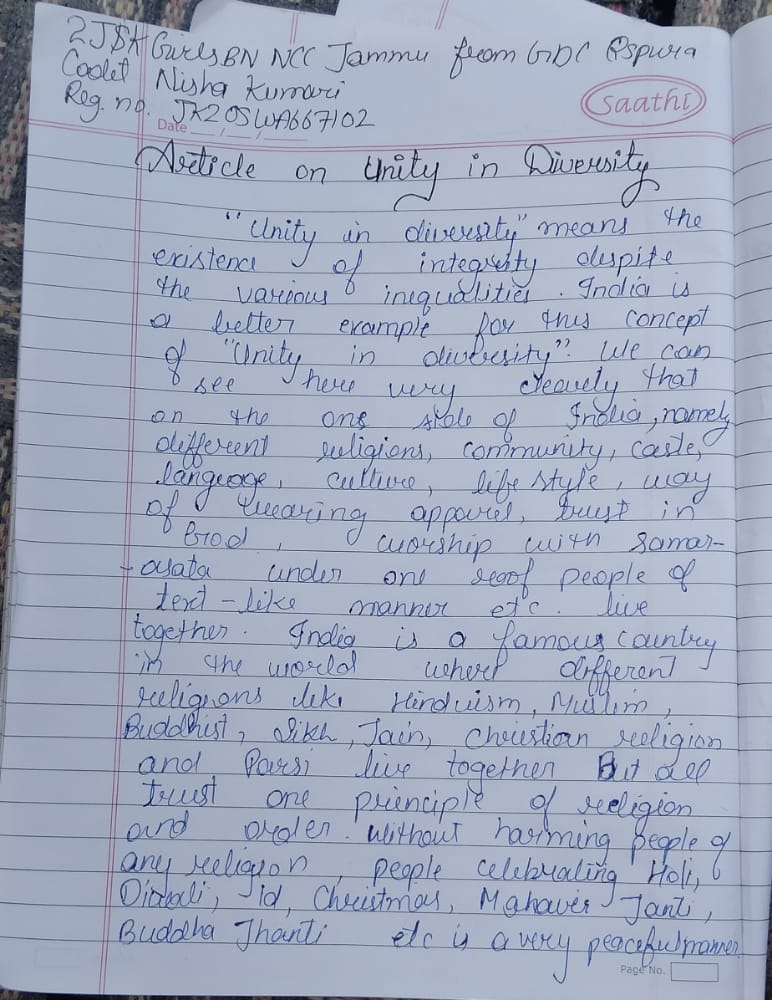 2J&K Girls BN NCC Jammu from GDC RSpura
Cadet Nisha Kumari
Reg. no. JK20SWA667102
saathi
Date __/__/__
Article on Unity in Diversity
"Unity in diversity" means the
existence of integrity despite
the various inequalities. India is
a better example for this concept
of "Unity in diversity". We can
see here very clearly that
on the one side of India, namely
different religions, community, caste,
language, culture, life style, way
of wearing apparel, trust in
God, worship with Samar-
-asata under one roof people of
text-like manner etc. live
together. India is a famous country
in the world where different
religions like Hinduism, Muslim,
Buddhist, Sikh, Jain, Christian religion
and Parsi live together But all
trust one principle of religion
and order. without harming people of
any religion, people celebrating Holi,
Diwali, Id, Christmas, Mahavir Janti,
Buddha Jhanti etc is a very peaceful manner
Page No.